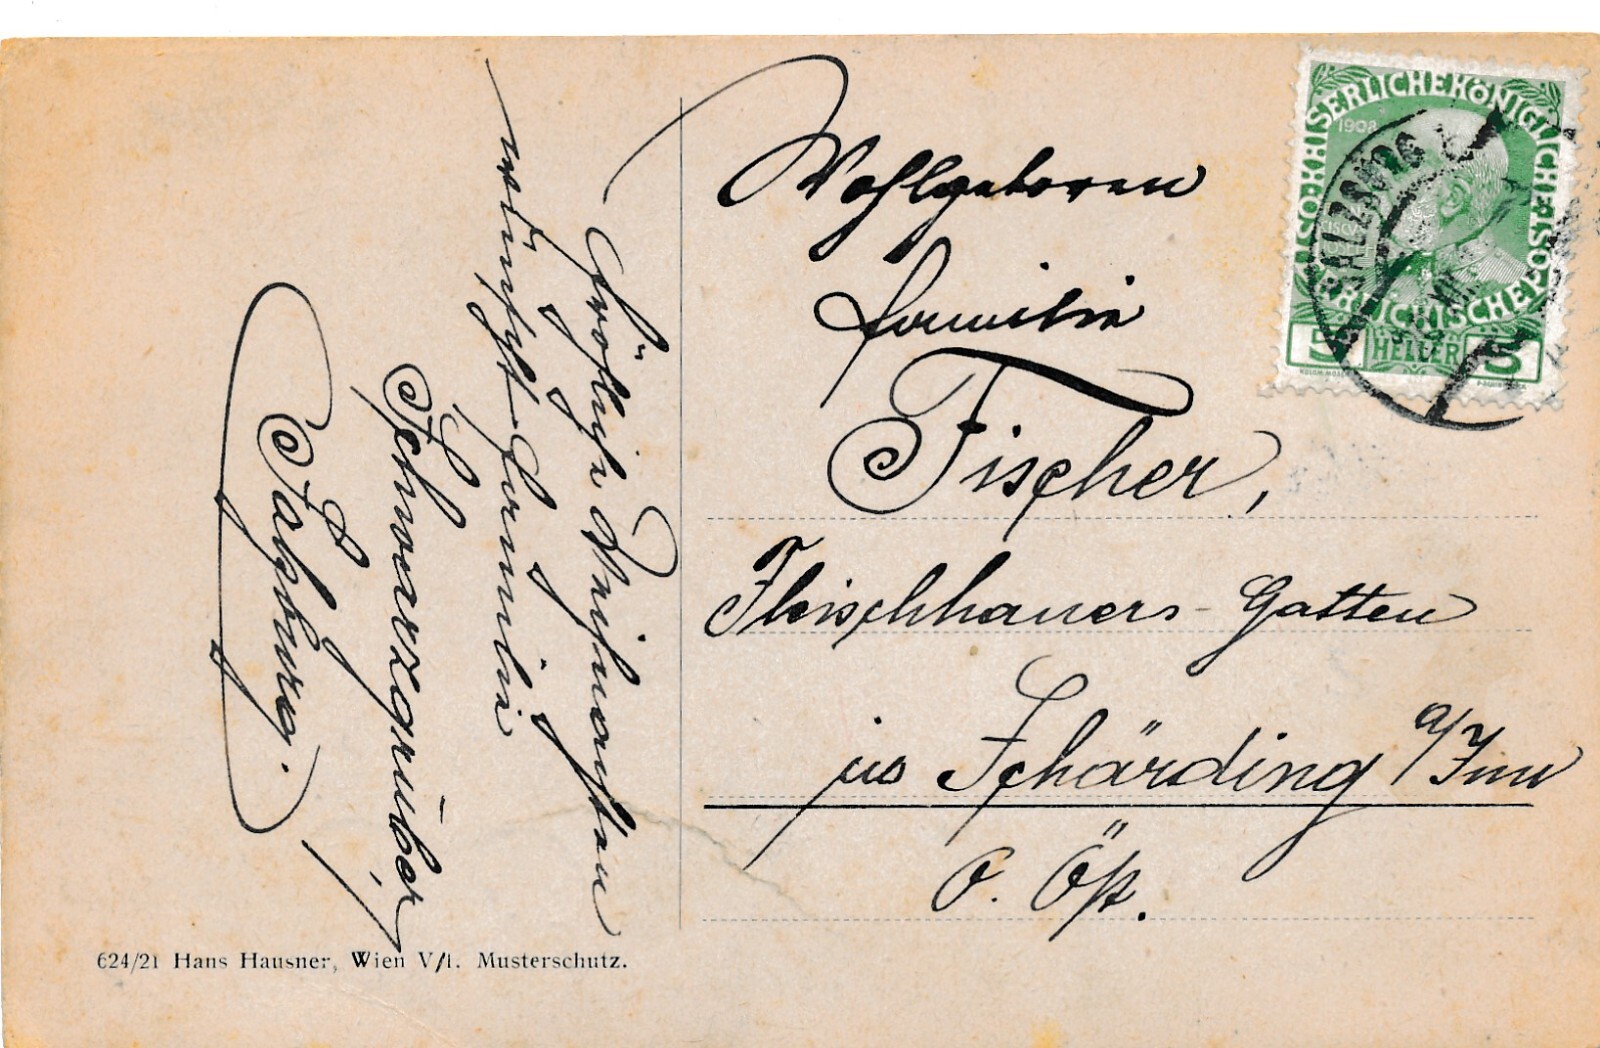 Fröhliche Weihnachten
wünscht Familie
Schwarzgruber,
Salzburg.
Wohlgeboren
Familie
Fischer,
Fleischhauers-Gatten
in Schärding a/Inn
O. Öst.
KAISERLICHE KÖNIGLICHE ÖSTERREICHISCHE POST
1908
5 HELLER 5
SALZBURG 1
624/21 Hans Hausner, Wien V/1. Musterschutz.